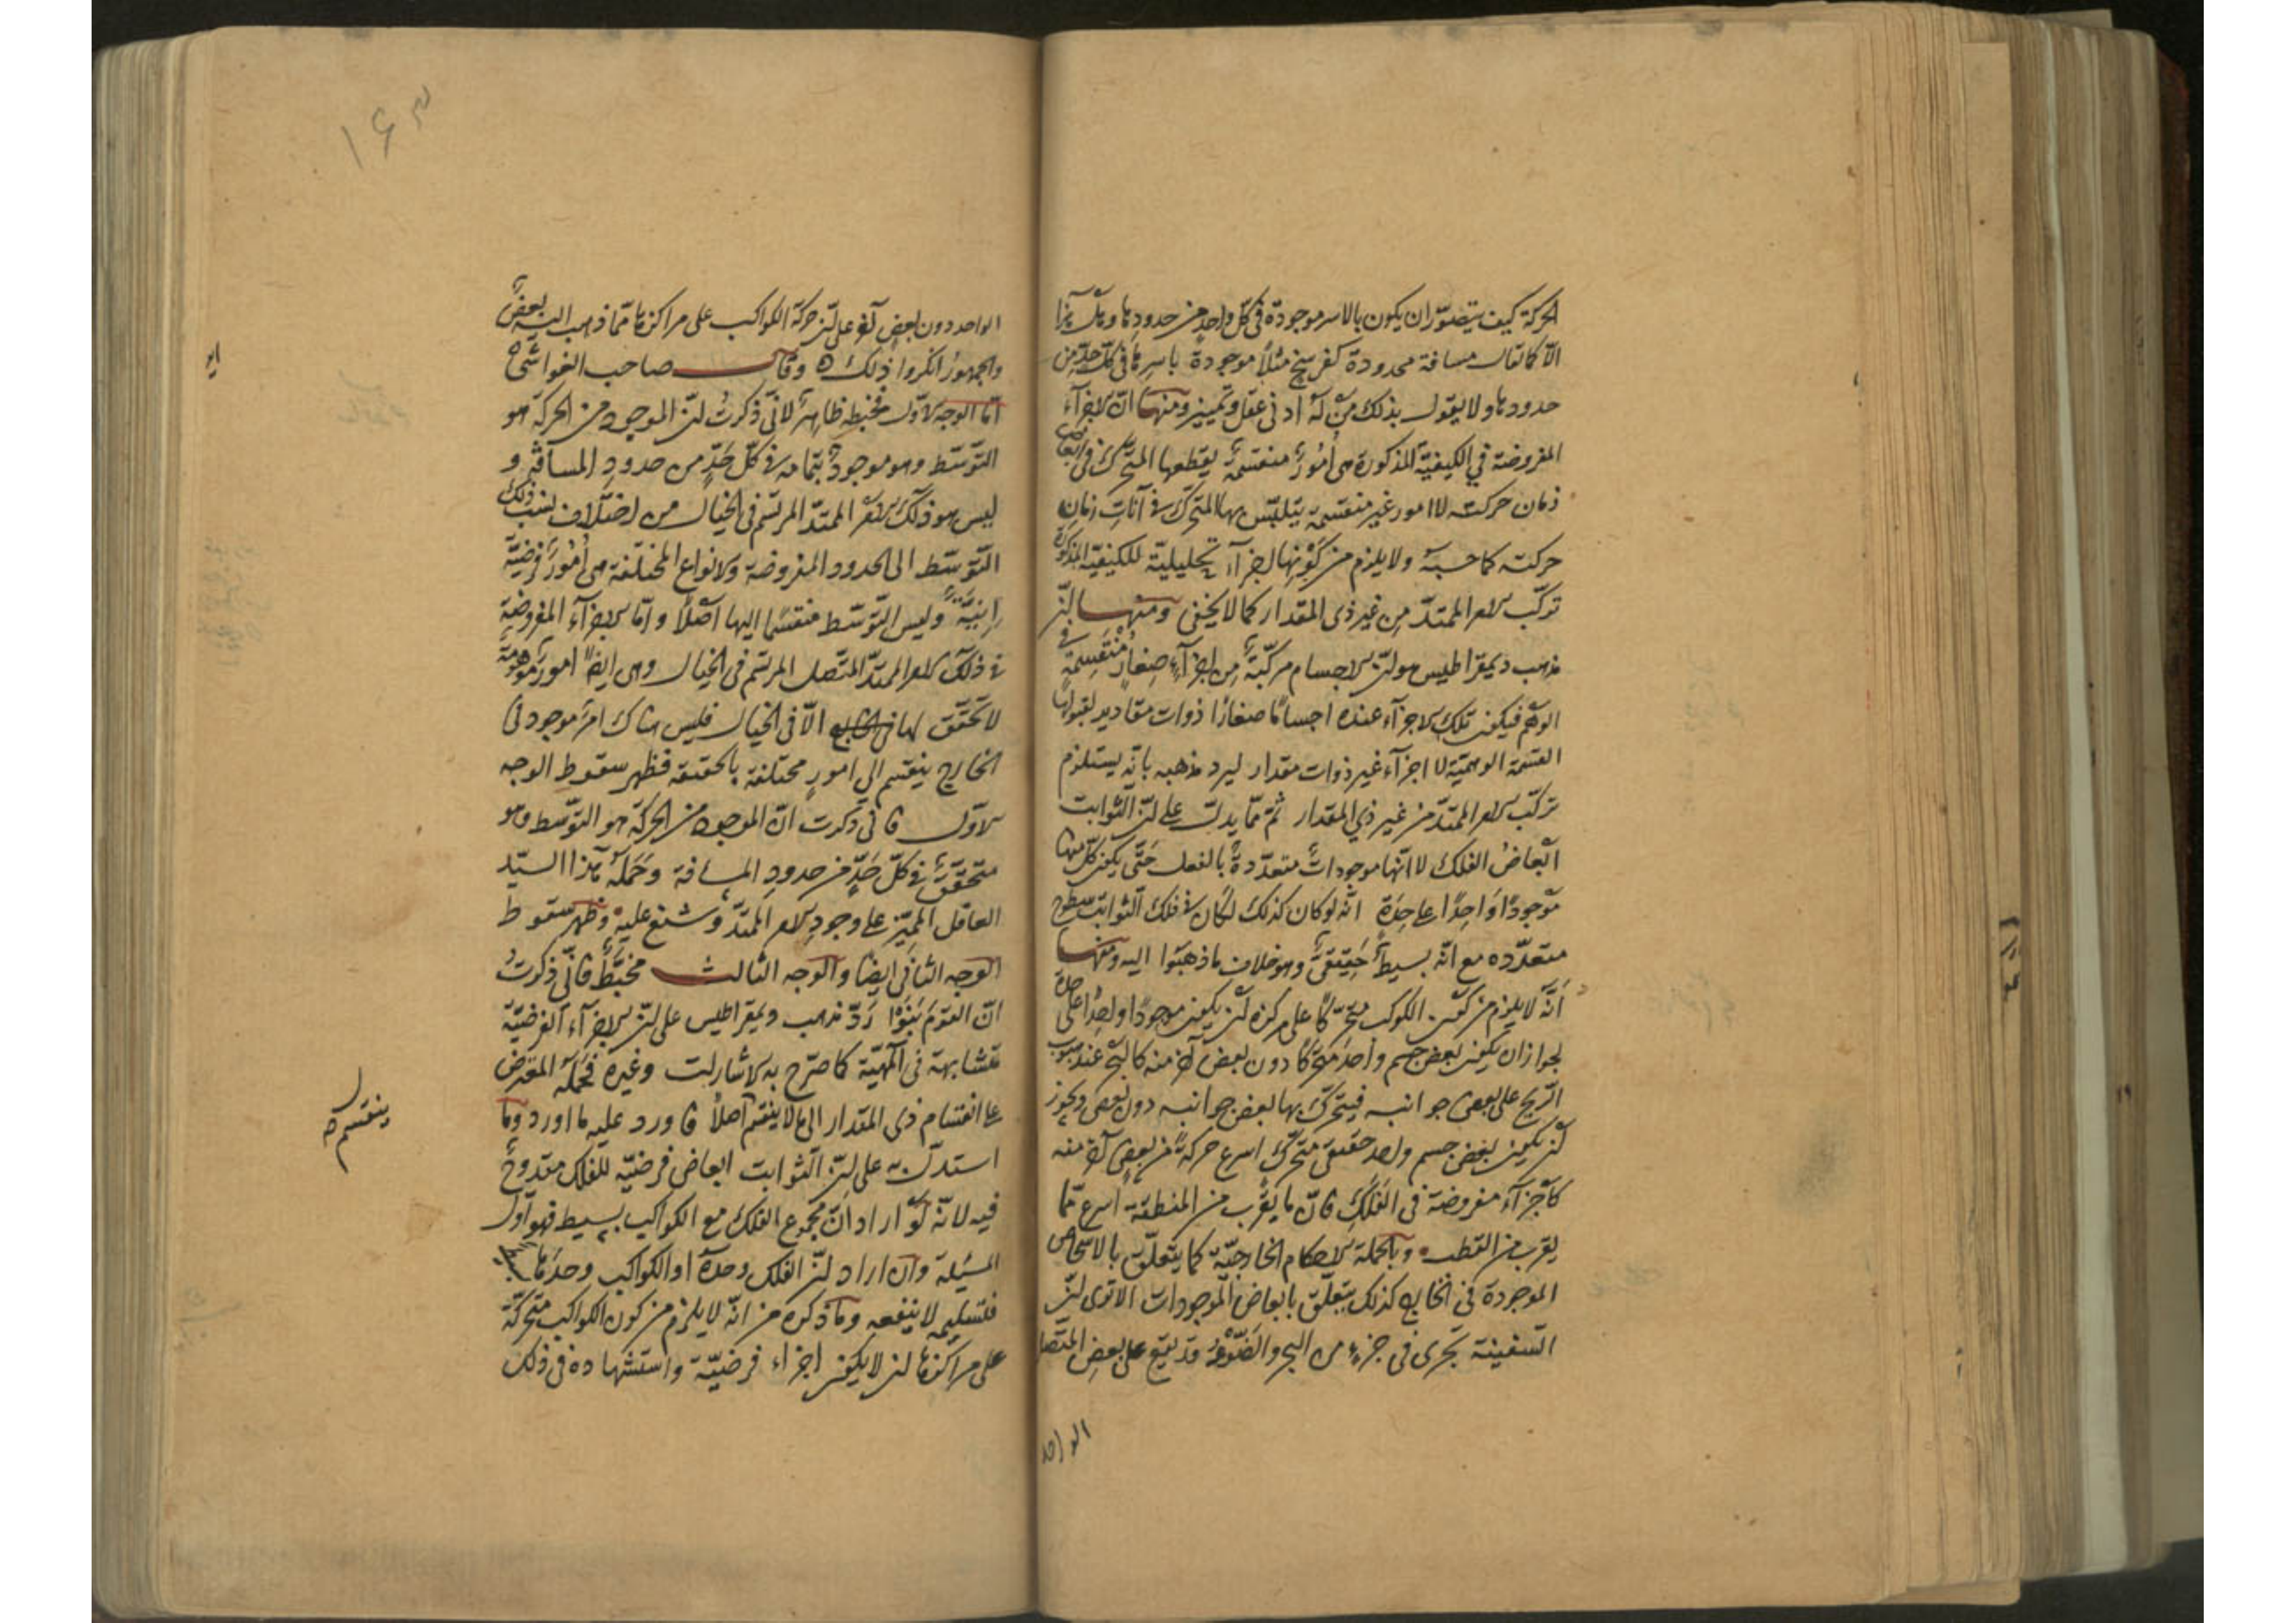 الحركة كيف يتصوّر ان يكون بالاسر موجودة فى كلّ واحد من حدودها وهل هذا
الّا كما يقال مسافة محدودة كفرسخ مثلًا موجودة باسرها فى كلّ حدّ من
حدودها ولا يقول بذلك من له ادنى عقل وتمييز ومنها انّ الاجزآء
المفروضة في الكيفيّة المذكورة هى أمورٌ منقسمةٌ يقطعها المتحرّك فى ابعاض
زمان حركته لا امور غير منقسمة يتلبّس بها المتحرّك فى آنات زمان
حركته كما حسبه ولا يلزم من كونها اجزآء تحليليّة للكيفيّة المذكورة
تركّب الامر الممتدّ من غير ذى المقدار كما لا يخفى ومنها انّ
مذهب ديمقراطيس هو انّ الاجسام مركّبةٌ من اجزآءٍ صغارٍ منقسمةٍ فى
الوهم فيكون تلك الاجزآء عنده اجسامًا صغارًا ذوات مقادير لقبولها
القسمة الوهميّة لا اجزآء غير ذوات مقدار ليرد مذهبه بانّه يستلزم
تركّب الامر الممتدّ من غير ذي المقدار ثمّ ممّا يدلّ على انّ الثوابت
ابعاضُ الفلك لا انّها موجوداتٌ متعدّدةٌ بالفعل حتّى يكون كلّ منها
موجودًا واحدًا على حدة انّه لو كان كذلك لكان فى فلك الثوابت سطوح
متعدّده مع انّه بسيطٌ حقيقىٌّ وهو خلاف ما ذهبوا اليه ومنها
انّه لا يلزم من كون الكوكب متحرّكًا على مركزه ان يكون موجودًا واحدًا على حدة
لجواز ان يكون بعض جسم واحد متحرّكًا دون بعض آخر منه كالبحر عند هبوب
الرّيح على بعض جوانبه فيتحرّك بها بعض جوانبه دون بعض ويجوز
ان يكون بعض جسم واحد حقيقىّ متحرّك اسرع حركةً من بعض آخر منه
كاجزآءٍ مفروضة فى الفلك فانّ ما يقرب من المنطقة اسرع ممّا
يقرب من القطب وبالجملة الاحكام الخارجيّة كما يتعلّق بالاشخاص
الموجودة فى الخارج كذلك يتعلّق بابعاض الموجودات الا ترى انّ
السّفينة تجرى فى جزءٍ من البحر والضّوء قد يقع على بعض المتّصل
الواحد
۱۶۳
الواحد دون بعض آخر على انّ حركة الكواكب على مراكزها ممّا ذهب اليه بعضٌ
والجمهورُ انكروا ذلك وقال صاحب الغواشى
امّا الوجه الاوّل فخبطه ظاهرٌ لانّى ذكرتُ انّ الموجود من الحركة هو
التوسّط وهو موجودٌ بتمامه فى كلّ حدٍّ من حدود المسافة و
ليس هو ذلك الامر الممتدّ المرتسم فى الخيال من اختلاف نسب ذلك
التوسّط الى الحدود المفروضة والانواع المختلفة هى أمورٌ فرضيّة
وليس التوسّط منقسمًا اليها اصلًا وامّا الاجزآء المفروضة
فى ذلك الامر الممتدّ المتّصل المرتسم فى الخيال وهى ايضًا امور موهومة
لا تحقّق لها الّا فى الخيال فليس هناك امرٌ موجود فى
الخارج ينقسم الى امورٍ مختلفة بالحقيقة فظهر سقوط الوجه
الاوّل فانى ذكرت انّ الموجود من الحركة هو التوسّط وهو
متحقّقٌ فى كلّ حدٍّ من حدود المسافة وحمله هذا السيّد
العاقل المميّز على وجود الامر الممتدّ وشنع عليه وظهر سقوط
الوجه الثانى ايضًا والوجه الثالث مخبّطٌ فانّى ذكرتُ
انّ القوم بنوا ردّ مذهب ديمقراطيس على انّ الاجزآء الفرضيّة
متشابهة فى المهيّة كما صرّح به الاشارات وغيره فحمله المعترض
على انقسام ذى المقدار الى ما لا ينقسم اصلًا فاورد عليه ما اورد وما
استدلّ به على انّ الثوابت ابعاض فرضيّه للفلك مقدوحٌ
فيه لانّه لو اراد انّ مجموع الفلك مع الكواكب بسيط فهو اوّل
المسئلة وان اراد انّ الفلك وحده او الكواكب وحدها
فتسليمه لا ينفعه وما ذكره من انّه لا يلزم من كون الكواكب متحركّة
على مراكزها ان لا يكون اجزاء فرضيّة واستشهاده فى ذلك
ينقسم